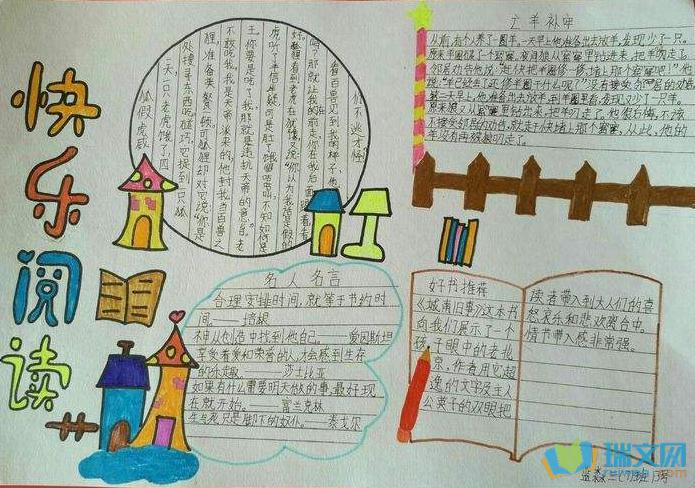 快乐阅读
狐假虎威
一天，一只老虎饿了，四
处搜寻东西吃，碰巧，捉到一只狐
狸，准备美餐一顿。可狐狸却对它说：“你是
不敢吃我，我是天帝派来的，他封我当百兽之
王，你要是吃了我，那就是违抗天帝的意旨。老
虎听了半信半疑，可是肚子饿得咕咕叫，不知如何是
好。狐狸看到老虎在犹豫，又说：“你以为我说是假的
吗？那就让我的前走，你在我后面跟着看看
看百兽见到我的样子，他
们不逃才怪。
亡羊补牢
从前，有个人养了一圈羊。一天早上他准备出去放羊，发现少了一只。
原来羊圈破了个窟窿，夜间狼从窟窿里钻进来，把羊叼走了。
邻居劝告他说：“赶快把羊圈修一修，堵上那个窟窿吧！”他
说：“羊已经丢了，还修羊圈干什么呢？”没有接受邻居的劝告。
第二天早上，他准备出去放羊，到羊圈里看，发现又少了一只羊。
原来狼又从窟窿里钻出来，把羊叼走了。他很后悔，不该
不接受邻居的劝告，就赶快堵上那个窟窿，从此，他的
羊没有再被狼叼走了。
名人名言
合理安排时间，就等于节约时
间。——培根
神从创造中找到他自己。——爱因斯坦
享受着爱和荣誉的人，才会感到生存
的乐趣。——莎士比亚
如果有什么需要明天做的事，最好现
在就开始。——富兰克林
——泰戈尔
好书推荐
《城南旧事》这本书
向我们展示了一个
孩子眼中的老北
京，作者用它超
逸的文字及主人
公英子的双眼把
读者带入到大人们的喜
怒哀乐和悲欢离合中。
情节带入感非常强。
瑞文网